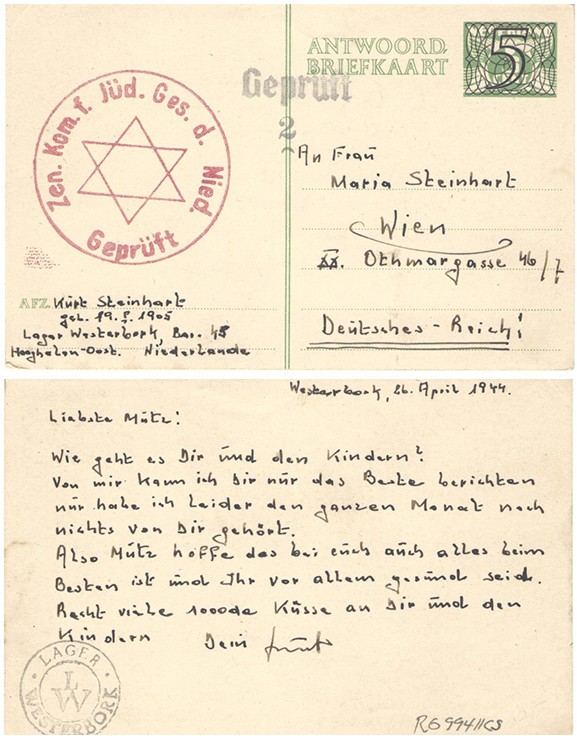 ANTWOORD
BRIEFKAART
5
Geprüft
2
Zen. Kom. f. Jüd. Ges. d. Nied.
Geprüft
An Frau
Maria Steinhart
Wien
XX. Othmargasse 46/7
Deutsches-Reich!
AFZ. Kurt Steinhart
geb. 19. 1905
Lager Westerbork, Bar. 45
Hooghalen-Oost. Niederlande
Westerbork, 26. April 1944.
Liebste Mütz!
Wie geht es Dir und den Kindern?
Von mir kann ich Dir nur das Beste berichten
nur habe ich leider den ganzen Monat noch
nichts von Dir gehört.
Also Mütz hoffe das bei euch auch alles beim
Besten ist und Ihr vor allem gesund seid.
Recht viele 1000de Küsse an Dir und den
Kindern Dein
LAGER
LW
WESTERBORK
RG99411GS